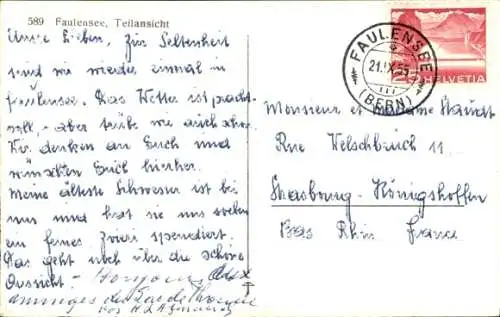 589 Faulensee, Teilansicht
Unsre Lieben, Zur Seltenheit
sind wir wieder einmal in
Faulensee. Das Wetter ist pracht-
voll, aber wir auch schon
Wir denken an Euch und
wünschten Euch hierher.
Meine älteste Schwester ist bei
uns und hat sie uns soeben
ein feines Zvieri spendiert.
Das geht noch über die schöne
Aussicht.
FAULENSEE
21.IX.55
(BERN)
HELVETIA
Monsieur et Madame Staudt
Rue Welschbruch 11
Strasbourg-Königshoffen
Bas Rhin France